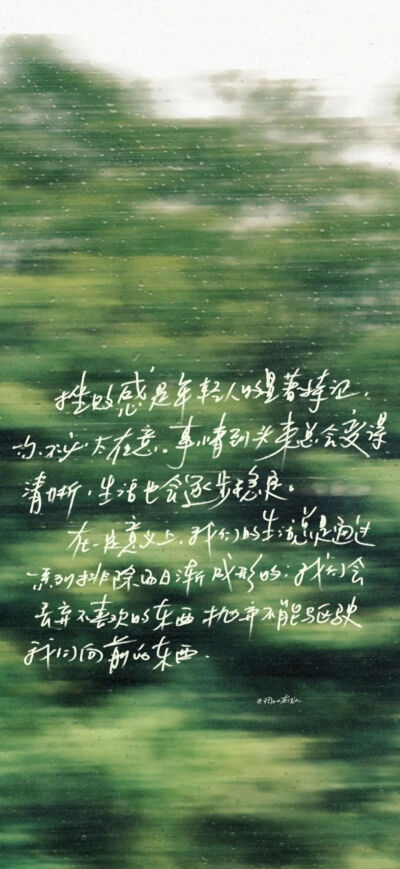 挫败感是年轻人的显著特征，
勿必太在意。事情到头来总会变得
清晰，生活也会逐步稳定。
在一定意义上，我们的生活总是通过
一系列排除而日渐成形的：我们会
丢弃不喜欢的东西，抛弃不能驱驶
我们向前的东西.